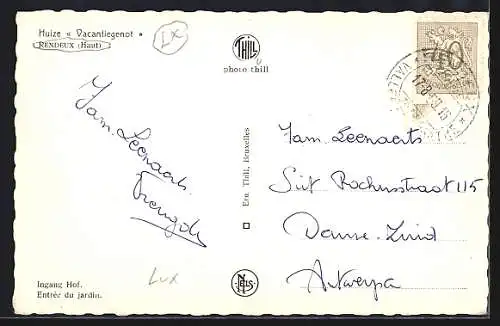 Huize « Vacantiegenot »
RENDEUX (Haut)
LX
THILL
photo thill
40
Jam. Leenaerts
Ern. Thill, Bruxelles
Jam. Leenaerts
Sint Rochusstraat 115
Deurne-Zuid
Antwerpen
Lux
NELS
Ingang Hof.
Entrée du jardin.